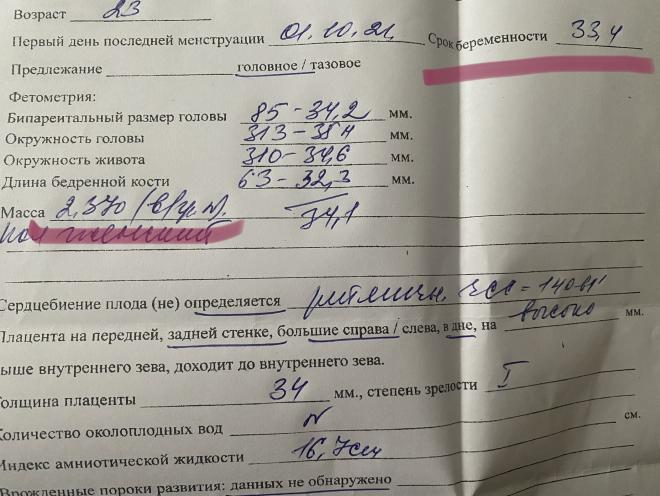 Возраст 23
Первый день последней менструации 01.10.21. Срок беременности 33,4
Предлежание головное / тазовое
Фетометрия:
Бипариетальный размер головы 85 – 34,2 мм.
Окружность головы 313 – мм.
Окружность живота 310 – 34,6 мм.
Длина бедренной кости 63 – 32,3 мм.
Масса 2,370 34,1
пол женский
Сердцебиение плода (не) определяется ритмичн. чсс = 140
Плацента на передней, задней стенке, большие справа / слева, в дне, на высоко мм.
выше внутреннего зева, доходит до внутреннего зева.
Толщина плаценты 34 мм., степень зрелости I
Количество околоплодных вод N см.
Индекс амниотической жидкости 16,7см
Врожденные пороки развития: данных не обнаружено